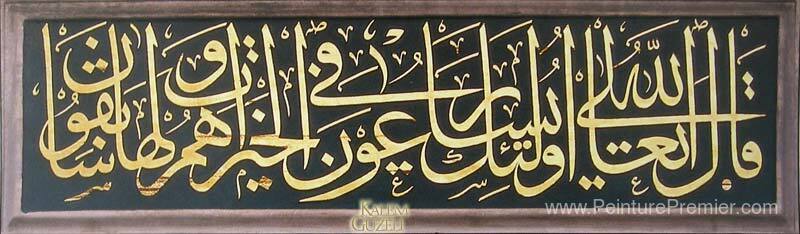 قال الله تعالى اولئك يسارعون في الخيرات وهم لها سابقون
KALEM
GÜZELİ
www.PeinturePremier.com